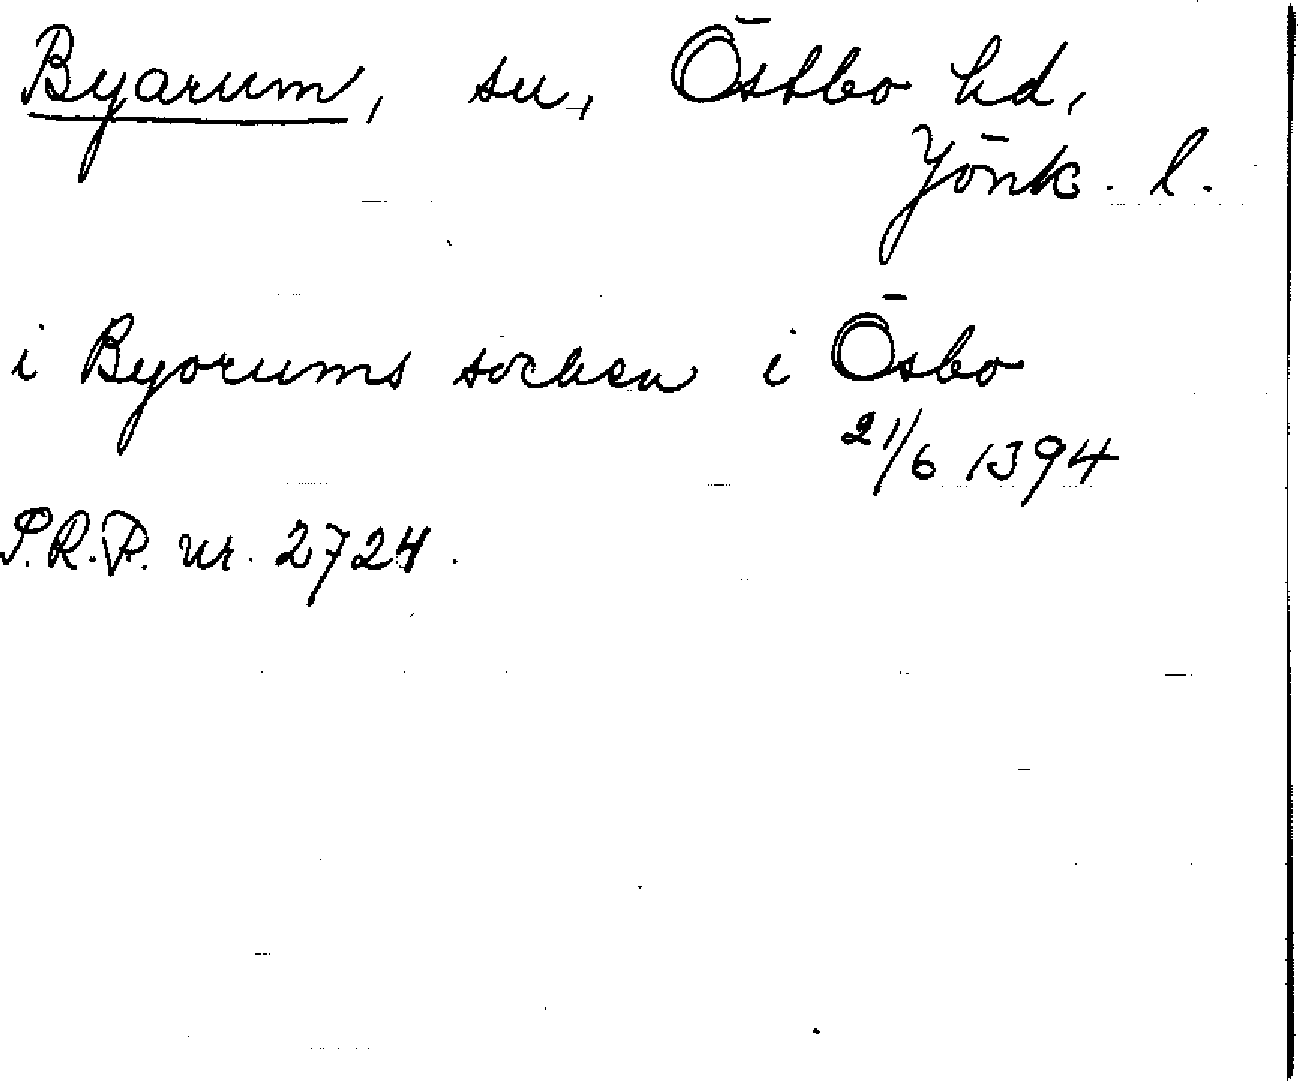 Byarum, sn, Östbo hd,
Jönk. l.
i Byorums sočken i Ösbo
21/6 1394
P.R.P. nr. 2724.